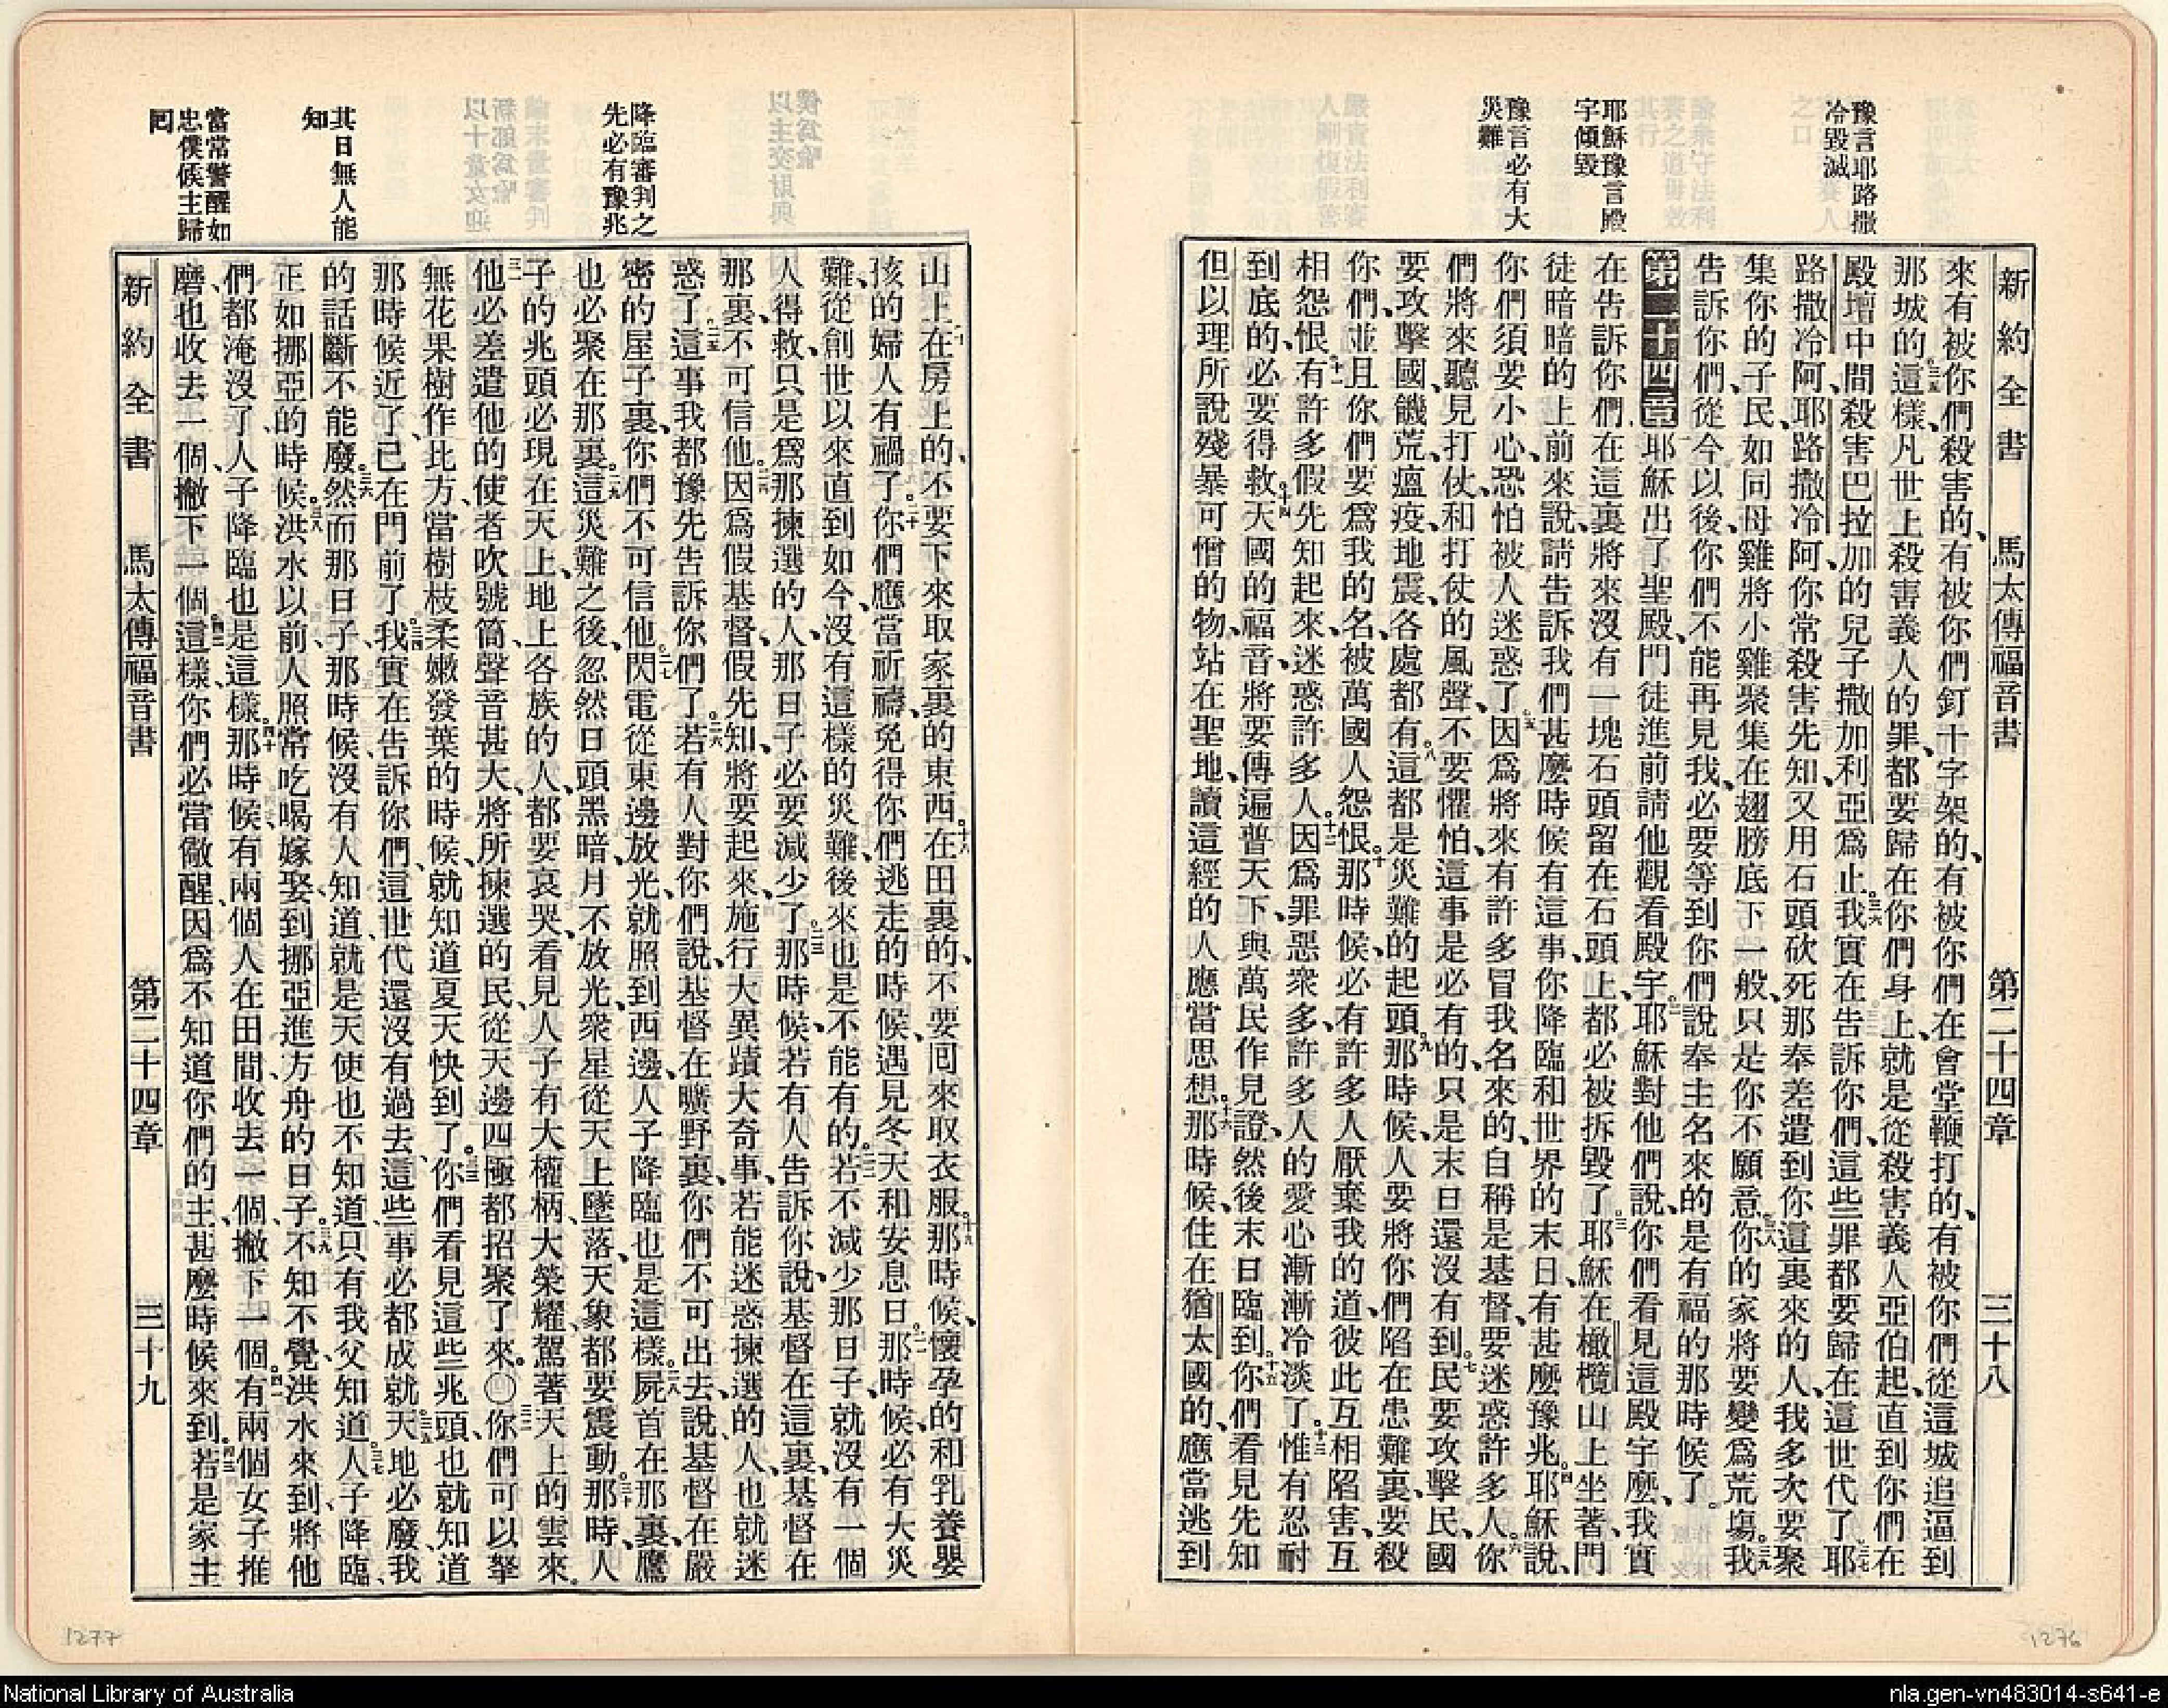 豫言耶路撒
冷毀滅
耶穌豫言殿
宇傾毀
豫言必有大
災難
新約全書 馬太傳福音書 第二十四章 三十八
來有被你們殺害的、有被你們釘十字架的、有被你們在會堂鞭打的、有被你們從這城追逼到
那城的。三五這樣、凡世上殺害義人的罪、都要歸在你們身上、就是從殺害義人亞伯起、直到你們在
殿壇中間、殺害巴拉加的兒子撒加利亞爲止。三六我實在告訴你們、這些罪都要歸在這世代了。三七耶
路撒冷阿、耶路撒冷阿、你常殺害先知、又用石頭砍死那奉差遣到你這裏來的人、我多次要聚
集你的子民、如同母雞將小雞聚集在翅膀底下一般、只是你不願意。三八你的家將要變爲荒塲。三九我
告訴你們、從今以後、你們不能再見我、必要等到你們說奉主名來的、是有福的那時候了。
第二十四章 一耶穌出了聖殿、門徒進前請他觀看殿宇。二耶穌對他們說、你們看見這殿宇麼、我實
在告訴你們、在這裏將來沒有一塊石頭留在石頭上、都必被拆毀了。三耶穌在橄欖山上坐著、門
徒暗暗的上前來說、請告訴我們、甚麼時候有這事、你降臨和世界的末日、有甚麼豫兆。四耶穌說、
你們須要小心、恐怕被人迷惑了。五因爲將來有許多冒我名來的、自稱是基督、要迷惑許多人。六你
們將來聽見打仗、和打仗的風聲、不要懼怕、這事是必有的、只是末日還沒有到。七民要攻擊民、國
要攻擊國、饑荒、瘟疫、地震、各處都有。八這都是災難的起頭。九那時候、人要將你們陷在患難裏、要殺
你們、並且你們要爲我的名、被萬國人怨恨。十那時候、必有許多人厭棄我的道、彼此互相陷害、互
相怨恨。十一有許多假先知起來、迷惑許多人。十二因爲罪惡衆多、許多人的愛心漸漸冷淡了。十三惟有忍耐
到底的、必要得救。十四天國的福音、將要傳遍普天下、與萬民作見證、然後末日臨到。十五你們看見先知
但以理所說殘暴可憎的物、站在聖地、讀這經的人應當思想。十六那時候、住在猶太國的、應當逃到
1276
降臨審判之
先必有豫兆
其日無人能
知
當常警醒如
忠僕候主歸
囘
山上。十七在房上的、不要下來取家裏的東西。十八在田裏的、不要囘來取衣服。十九那時候、懷孕的和乳養嬰
孩的婦人有禍了。二十你們應當祈禱、免得你們逃走的時候、遇見冬天和安息日。二一那時候、必有大災
難、從創世以來直到如今、沒有這樣的災難、後來也是不能有的。二二若不減少那日子、就沒有一個
人得救、只是爲那揀選的人、那日子必要減少了。二三那時候、若有人告訴你說、基督在這裏、基督在
那裏、不可信他。二四因爲假基督、假先知、將要起來、施行大異蹟大奇事、若能迷惑揀選的人、也就迷
惑了。二五這事我都豫先告訴你們了。二六若有人對你們說、基督在曠野裏、你們不可出去、說基督在嚴
密的屋子裏、你們不可信他。二七閃電從東邊放光、就照到西邊、人子降臨也是這樣。二八屍首在那裏、鷹
也必聚在那裏。二九這災難之後、忽然日頭黑暗、月不放光、衆星從天上墜落、天象都要震動。三十那時、人
子的兆頭必現在天上、地上各族的人、都要哀哭、看見人子有大權柄、大榮耀、駕著天上的雲來。
三一他必差遣他的使者吹號筒、聲音甚大、將所揀選的民、從天邊四極都招聚了來。○三二你們可以拏
無花果樹作比方、當樹枝柔嫩發葉的時候、就知道夏天快到了。三三你們看見這些兆頭、也就知道
那時候近了、已在門前了。三四我實在告訴你們、這世代還沒有過去、這些事必都成就。三五天地必廢、我
的話斷不能廢。三六然而那日子、那時候、沒有人知道、就是天使也不知道、只有我父知道。三七人子降臨、
正如挪亞的時候。三八洪水以前、人照常吃喝嫁娶、到挪亞進方舟的日子。三九不知不覺、洪水來到、將他
們都淹沒了、人子降臨也是這樣。四十那時候、有兩個人在田間、收去一個、撇下一個。四一有兩個女子推
磨、也收去一個、撇下一個。四二這樣、你們必當儆醒、因爲不知道你們的主、甚麼時候來到。四三若是家主
新約全書 馬太傳福音書 第二十四章 三十九
1277
National Library of Australia
nla.gen-vn483014-s641-e